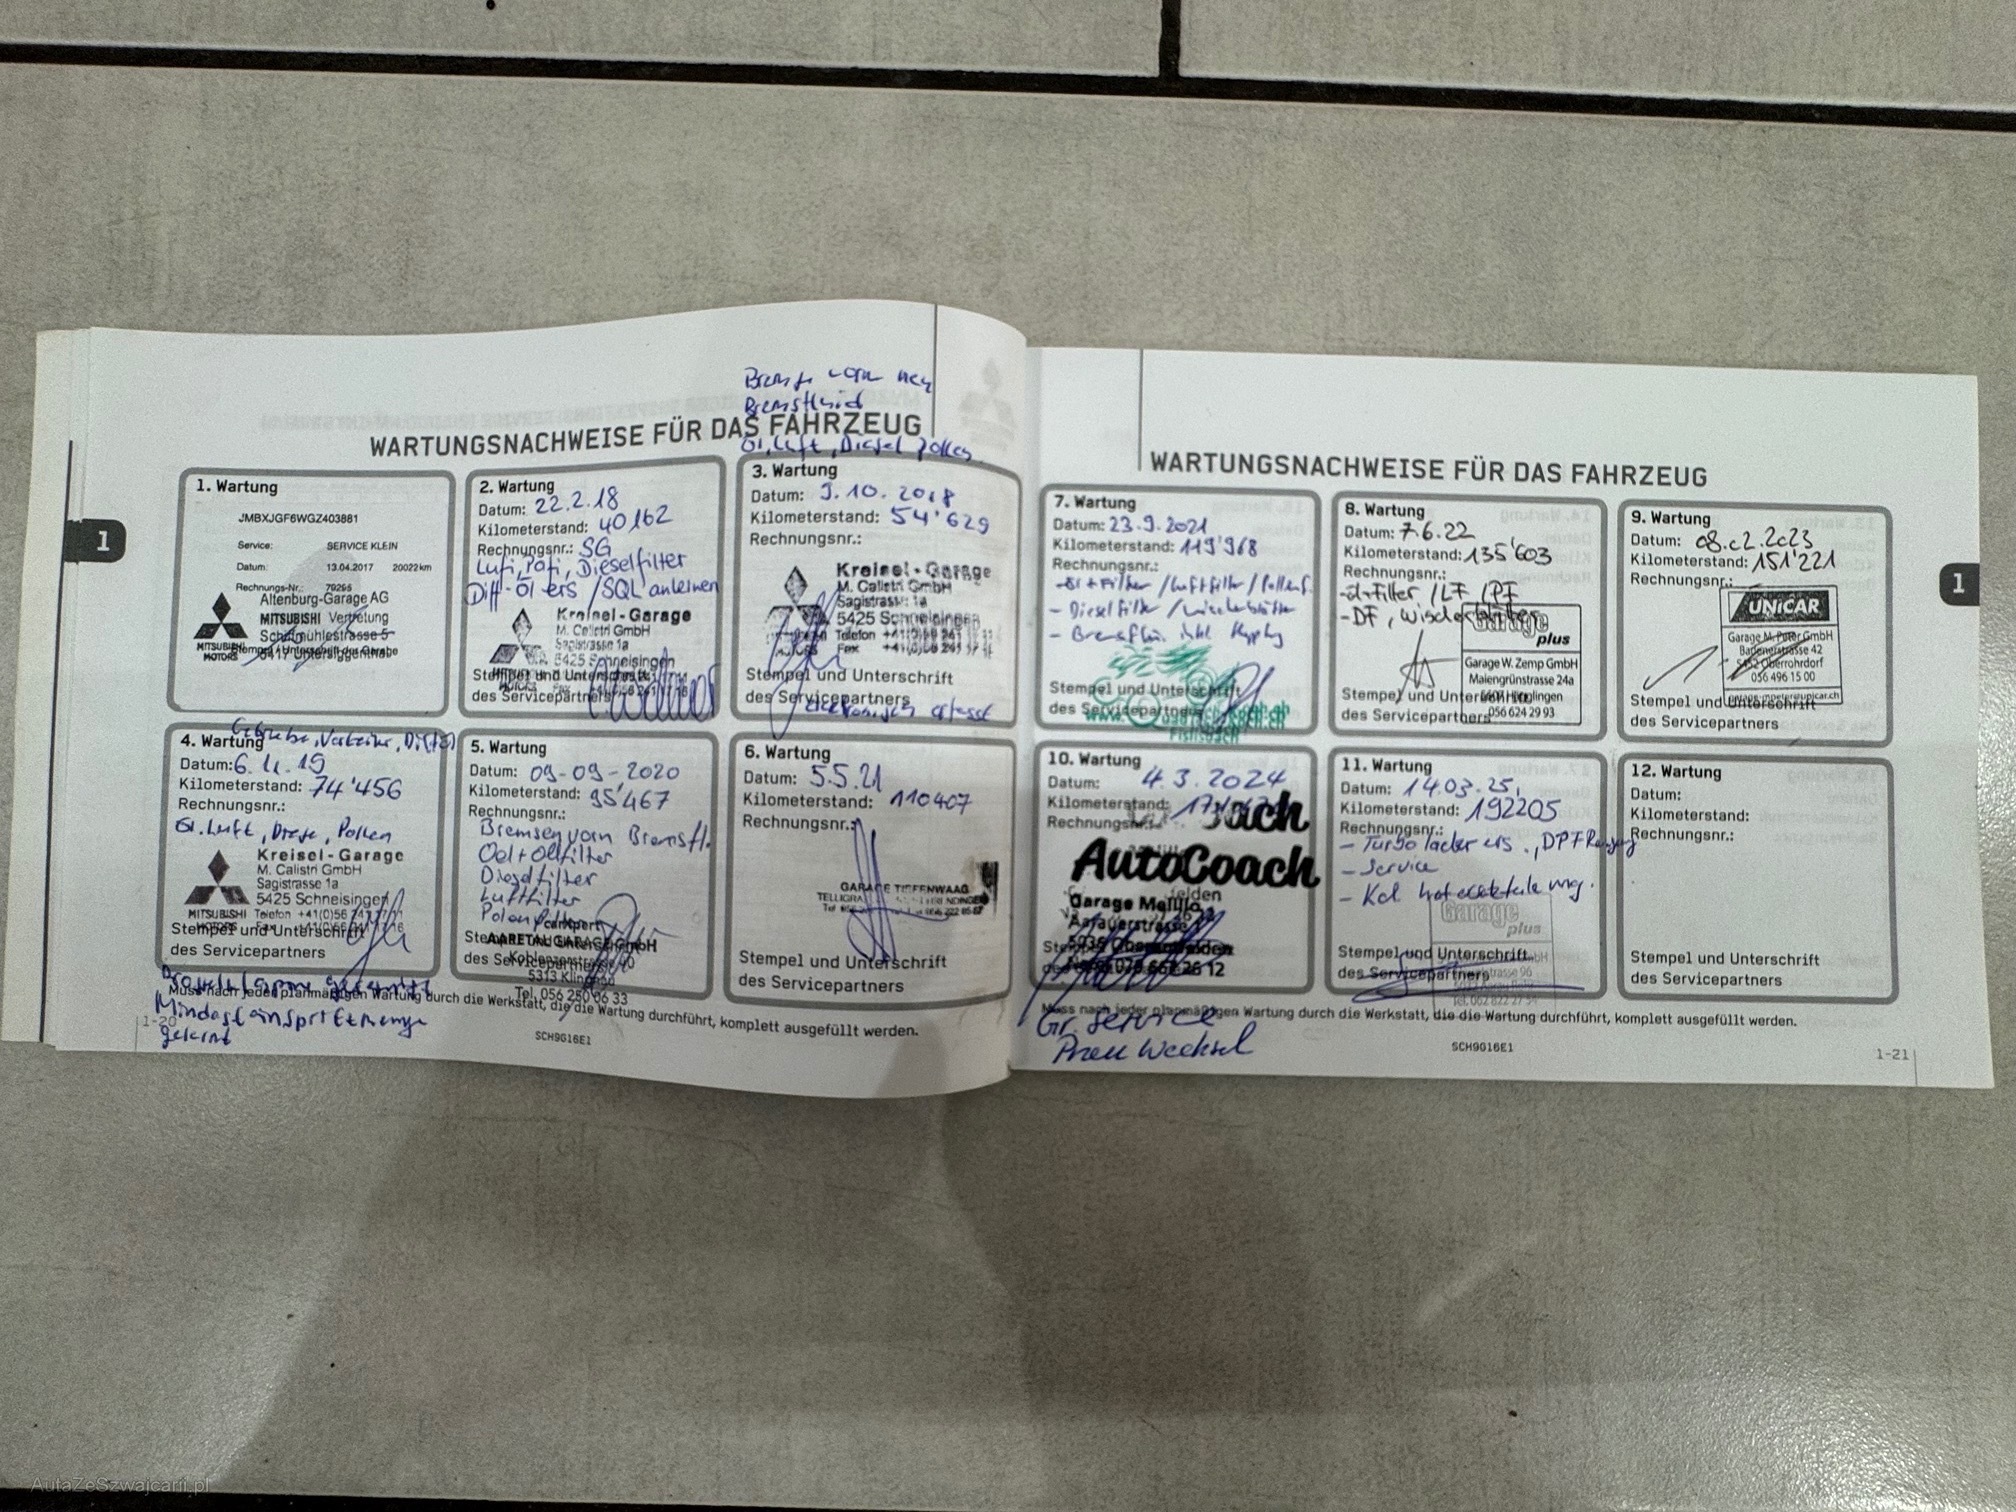 Bremse vorn neu
WARTUNGSNACHWEISE FÜR DAS FAHRZEUG
Öl, Luft, Diesel Pollen
1
1. Wartung
JMBXJGF6WGZ403881
Service: SERVICE KLEIN
Datum: 13.04.2017 20022km
Rechnungs-Nr.: 79295
Altenburg-Garage AG
MITSUBISHI Vertretung
MITSUBISHI
MOTORS
2. Wartung
Datum: 22.2.18
Kilometerstand: 40162
Rechnungsnr.: SG
Lufi, Pofi, Dieselfilter
Diff-Öl ers / SQL anlernen
Kreisel-Garage
M. Calistri GmbH
Sagistrasse 1a
5425 Schneisingen
Stempel und Unterschrift
des Servicepartners
3. Wartung
Datum: 9.10.2018
Kilometerstand: 54'629
Rechnungsnr.:
Kreisel-Garage
M. Calistri GmbH
Sagistrasse 1a
5425 Schneisingen
Telefon
Fax
Stempel und Unterschrift
des Servicepartners
elektronisch erfasst
4. Wartung
Datum: 6.11.19
Kilometerstand: 74'456
Rechnungsnr.:
Öl, Luft, Diese, Pollen
Kreisel-Garage
M. Calistri GmbH
Sagistrasse 1a
5425 Schneisingen
MITSUBISHI Telefon
MOTORS Fax
Stempel und Unterschrift
des Servicepartners
Mindesteinspritzmenge
gelernt
5. Wartung
Datum: 09-09-2020
Kilometerstand: 95'467
Rechnungsnr.:
Bremsen vorn Bremsfl.
Oel+Ölfilter
Dieselfilter
Luftfilter
carXpert
AARETAL GARAGE GmbH
Koblenzerstrasse
5313 Klingnau
Tel. 056 250 06 33
6. Wartung
Datum: 5.5.21
Kilometerstand: 110407
Rechnungsnr.:
GARAGE TIEFENWAAG
Stempel und Unterschrift
des Servicepartners
Muss nach jeder planmäßigen Wartung durch die Werkstatt, die die Wartung durchführt, komplett ausgefüllt werden.
1-20
SCH9G16E1
WARTUNGSNACHWEISE FÜR DAS FAHRZEUG
1
7. Wartung
Datum: 23.9.2021
Kilometerstand: 119'968
Rechnungsnr.:
- Öl+Filter / Luftfilter / Pollenf.
- Dieselfilter / Wischerblätter
Stempel und Unterschrift
des Servicepartners
8. Wartung
Datum: 7.6.22
Kilometerstand: 135'603
Rechnungsnr.:
- Öl+Filter / LF / PF
- DF, Wischerblätter
Garage
plus
Garage W. Zemp GmbH
Maiengrünstrasse 24a
5607 Hägglingen
056 624 29 93
Stempel und Unterschrift
des Servicepartners
9. Wartung
Datum: 08.02.2023
Kilometerstand: 151'221
Rechnungsnr.:
UNiCAR
Garage M. Peter GmbH
Badenerstrasse 42
5452 Oberrohrdorf
056 496 15 00
garage-mpeter@unicar.ch
Stempel und Unterschrift
des Servicepartners
10. Wartung
Datum: 4.3.2024
Kilometerstand:
Rechnungsnr.:
AutoCoach
Garage Melillo
Aarauerstrasse
5036 Oberentfelden
Gr. Service
11. Wartung
Datum: 14.03.25
Kilometerstand: 192205
Rechnungsnr.:
- Turbolader ers., DPF Reinigung
- Service
Garage
plus
Stempel und Unterschrift
des Servicepartners
12. Wartung
Datum:
Kilometerstand:
Rechnungsnr.:
Stempel und Unterschrift
des Servicepartners
Muss nach jeder planmäßigen Wartung durch die Werkstatt, die die Wartung durchführt, komplett ausgefüllt werden.
SCH9G16E1
1-21
AutaZeSzwajcarii.pl